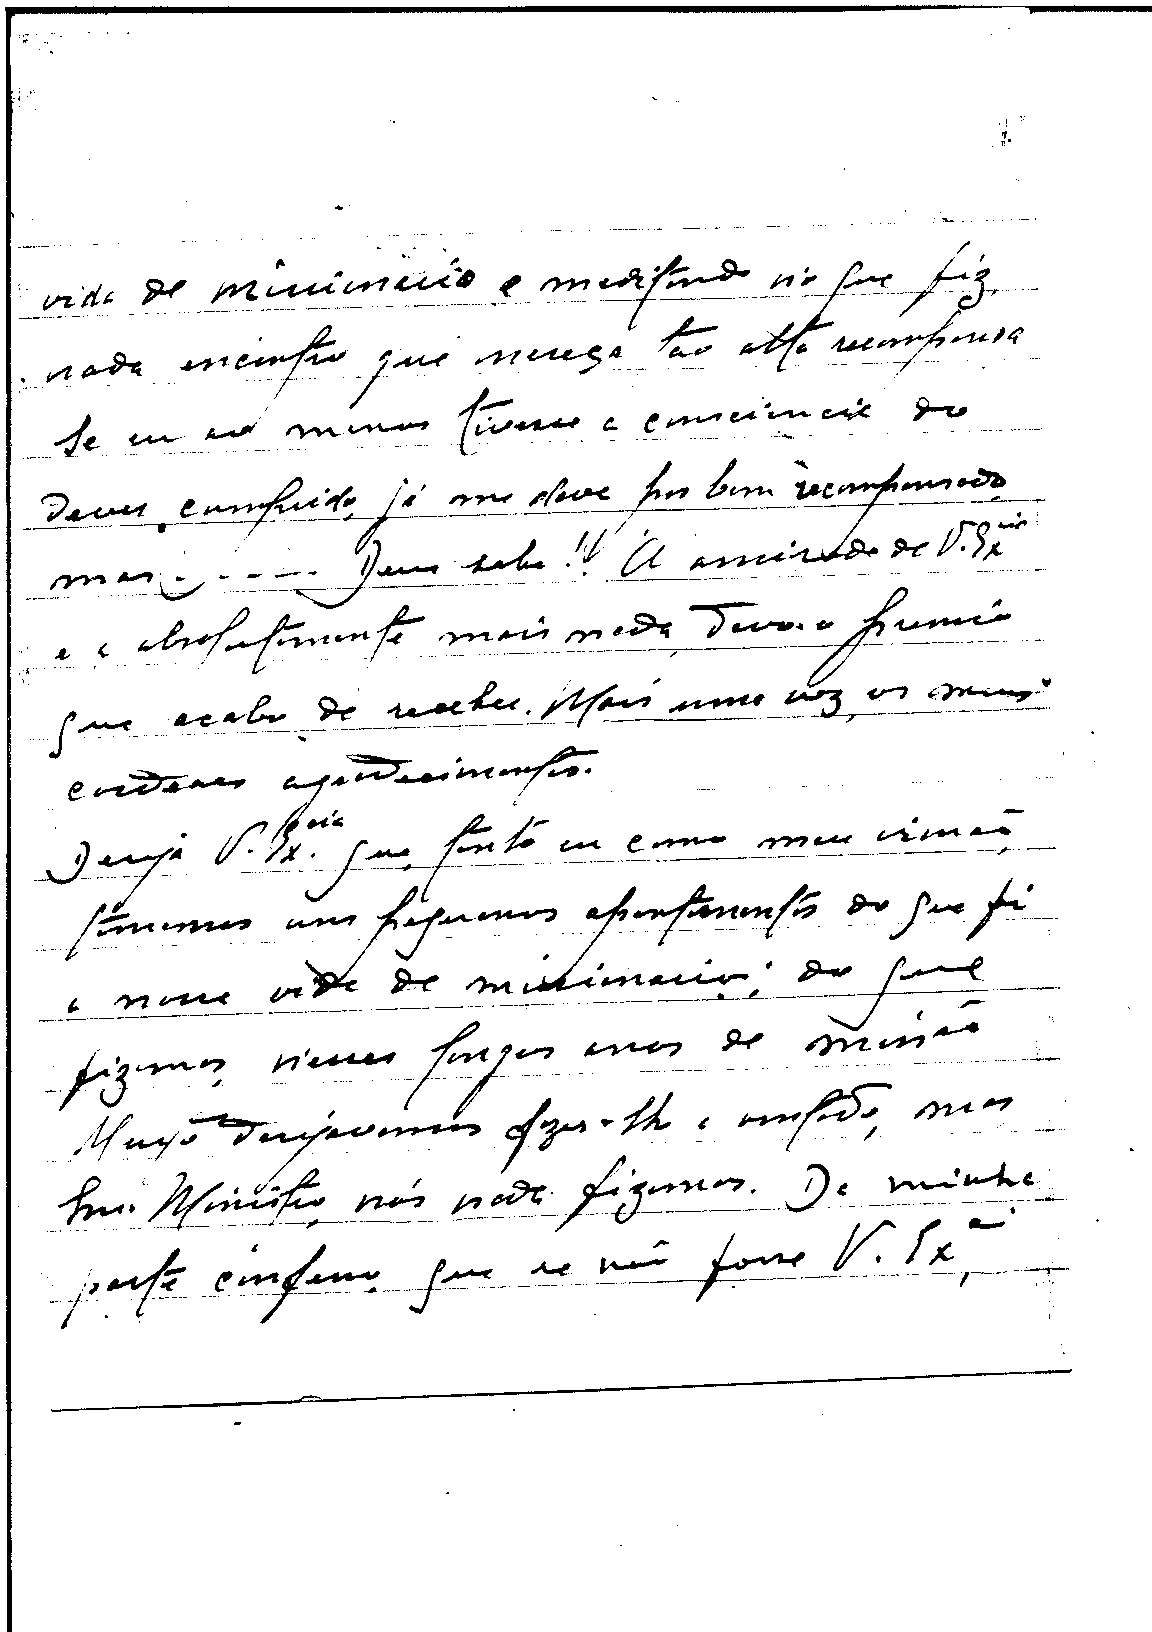 vida de missionario e meditando no que fiz,
nada encontro que mereça tão alta recompensa
Se eu ao menos tivesse a consciencia do
dever cumprido, já me dava por bem recompensado
mas . . - - - . Deus sabe!! A amisade de V. Excia
e a absolutamente mais nada, devo o premio
que acabo de receber. Mais uma vez, os meus
cordeaes agradecimentos.
Deseja V. Excia. que, tanto eu como meu irmão,
tomemos uns pequenos apontamentos do que foi
a nossa vida de missionarios; do que
fizemos, nesses longos anos de missão
Muito desejavamos fazer-lhe a vontade, mas
Snr. Ministro, nós nada fizemos. De minha
parte confesso, que se não fosse V. Exa,